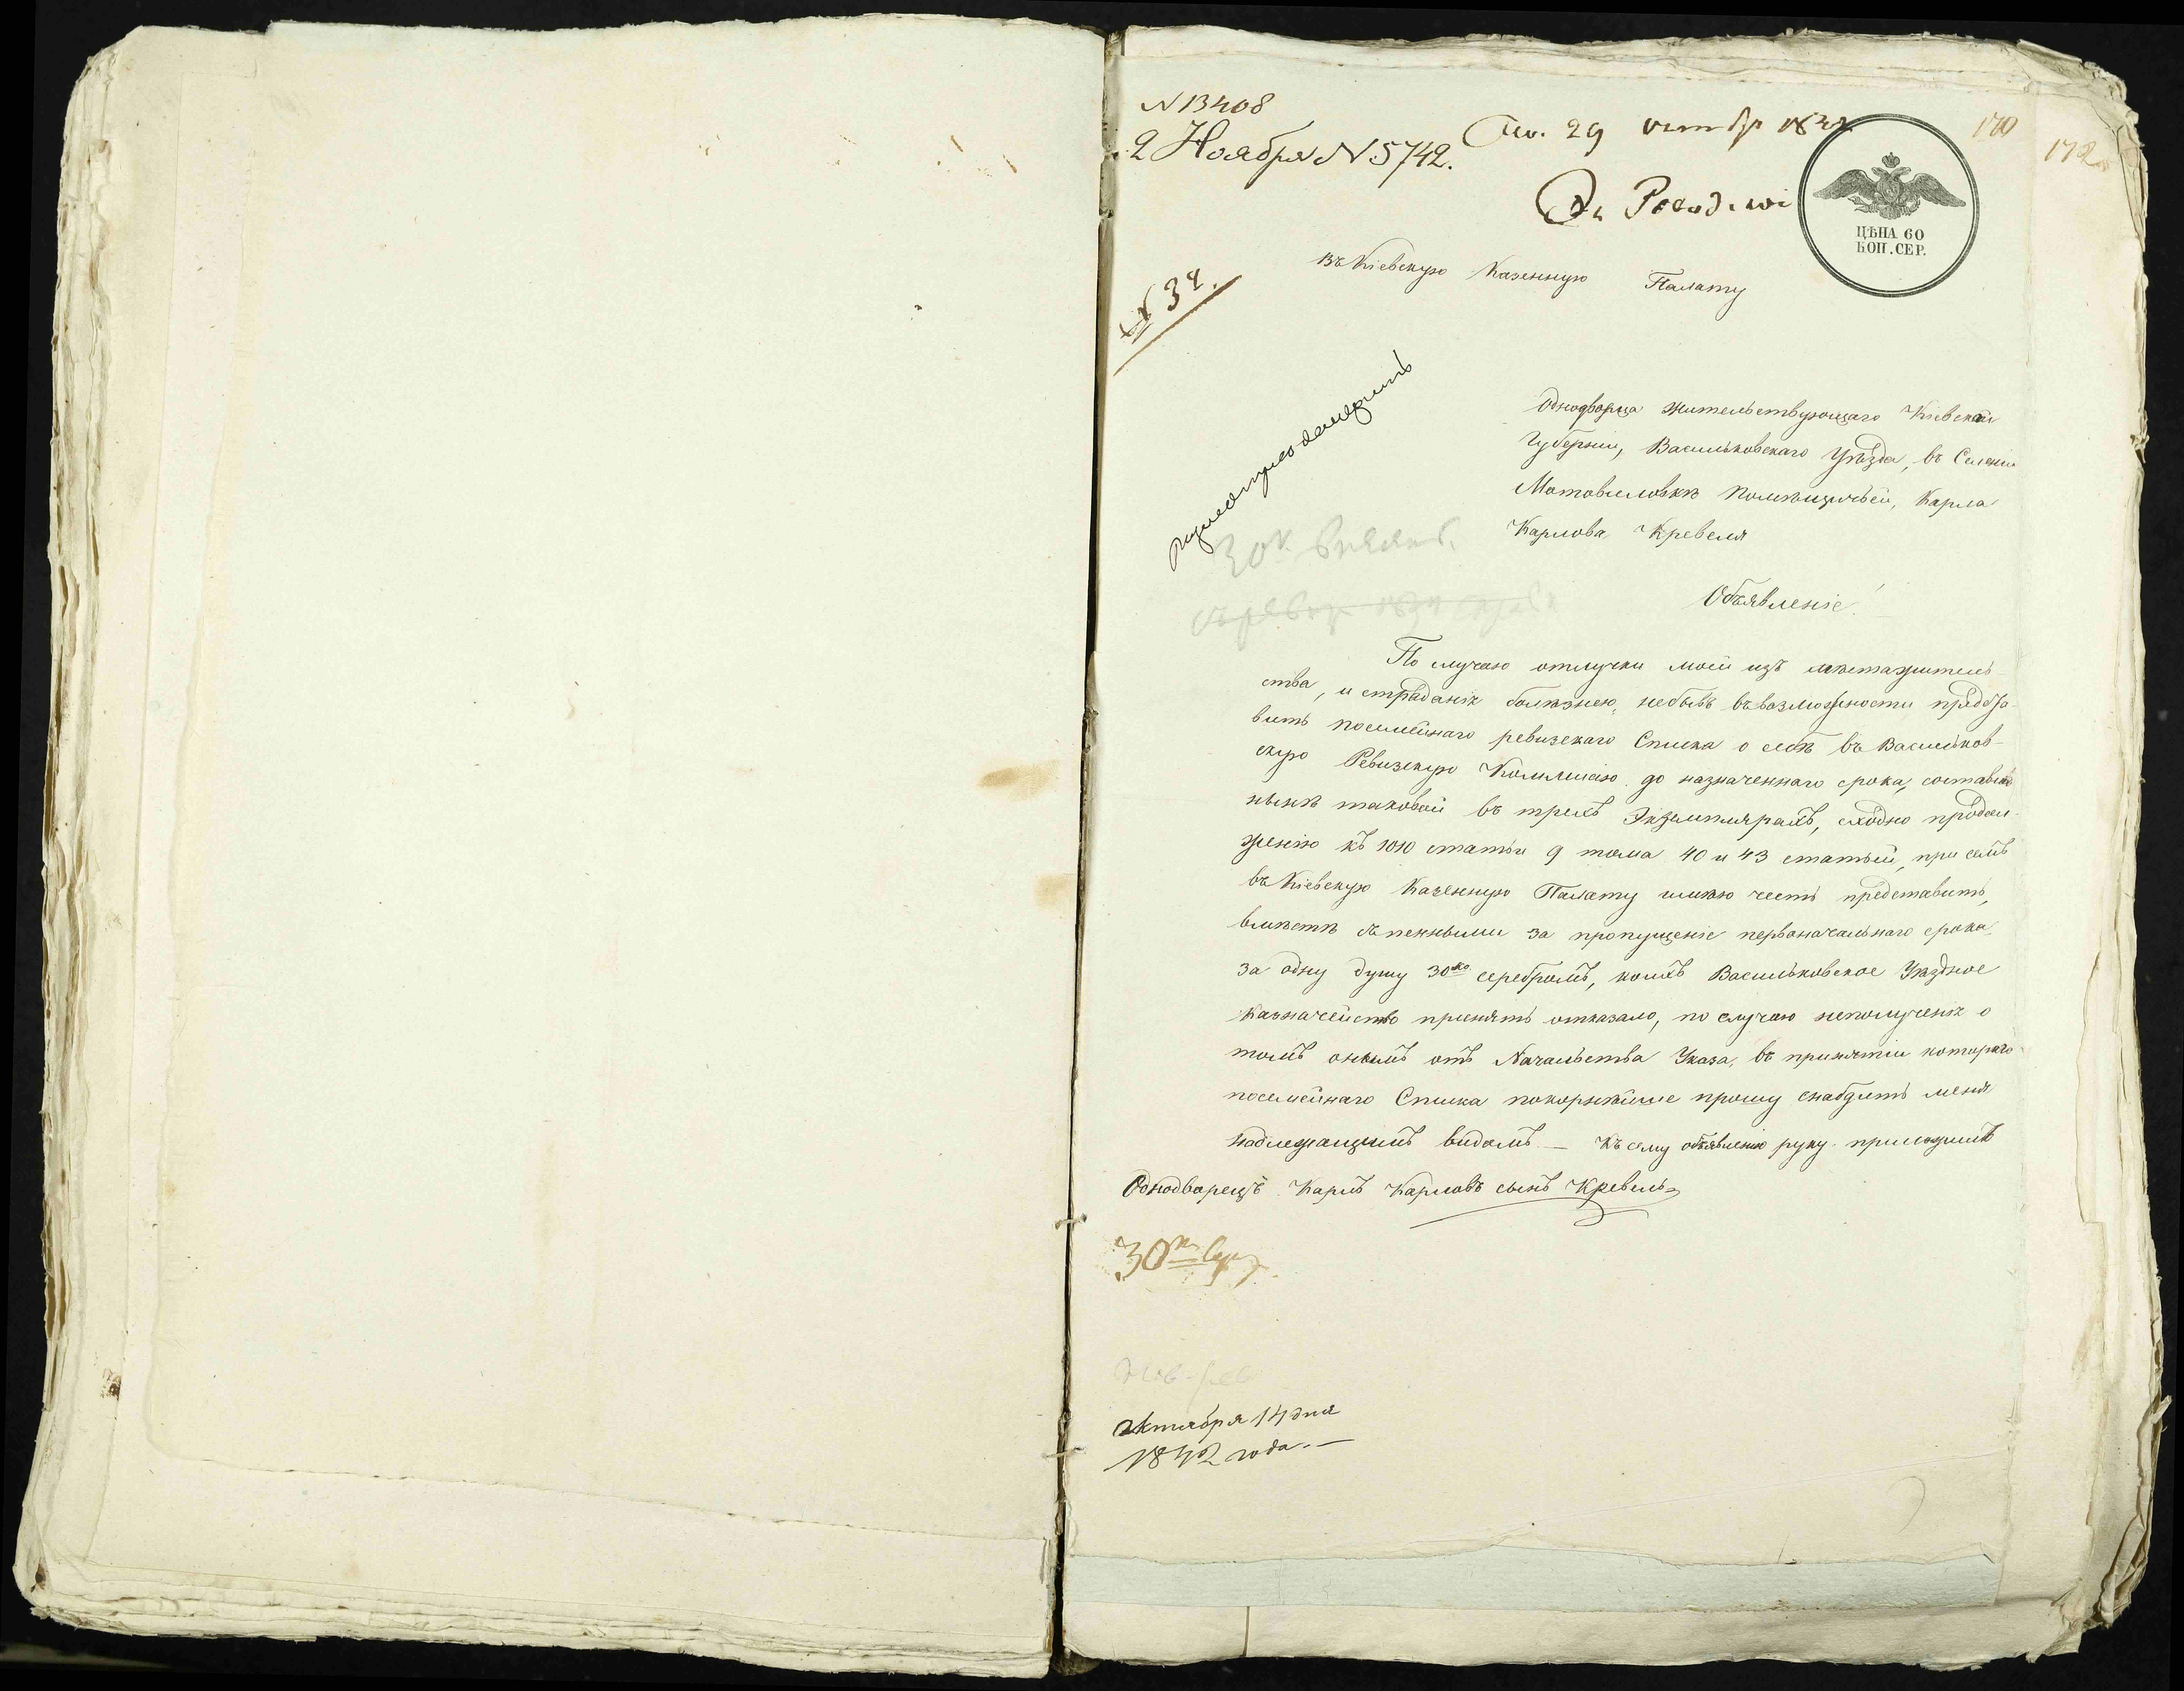 N 13408
2 Ноября N 5742.
29 октбр 1842
170
172
ЦѢНА 60
КОП. СЕР.
Въ Кіевскую Казенную Палату
N 34.
Однодворца жительствующаго Кіевской
Губерніи, Васильковскаго Уѣзда, въ Селеніи
Мотовиловкѣ Помѣщичьей, Карла
Карлова Кревеля
30 к.
Объявленіе!
По случаю отлучки моей изъ мѣстажитель-
ства, и страданія болѣзнею, небывъ въ возможности предста-
вить посемейнаго ревизскаго Списка о себѣ въ Васильков-
скую Ревизскую Коммисію до назначеннаго срока, составивъ
нынѣ таковой въ трехъ Экземплярахъ, сходно продол-
женію къ 1010 статьи 9 тома 40 и 43 статьей, при семъ
въ Кіевскую Казенную Палату имѣю честь представить,
вмѣстѣ съ пенными за пропущеніе первоначальнаго срока
за одну душу 30 ко серебромъ, коихъ Васильковское Уѣздное
Казначейство принять отказало, по случаю неполученія о
томъ онымъ отъ Начальства Указа, въ принятіи котораго
посемейнаго Списка покорнѣйше прошу снабдить меня
надлежащимъ видомъ. — Къ сему объявленію руку приложилъ
Однодворецъ Карлъ Карловъ сынъ Кревель
30 к. сер.
октября 14 дня
1842 года. —